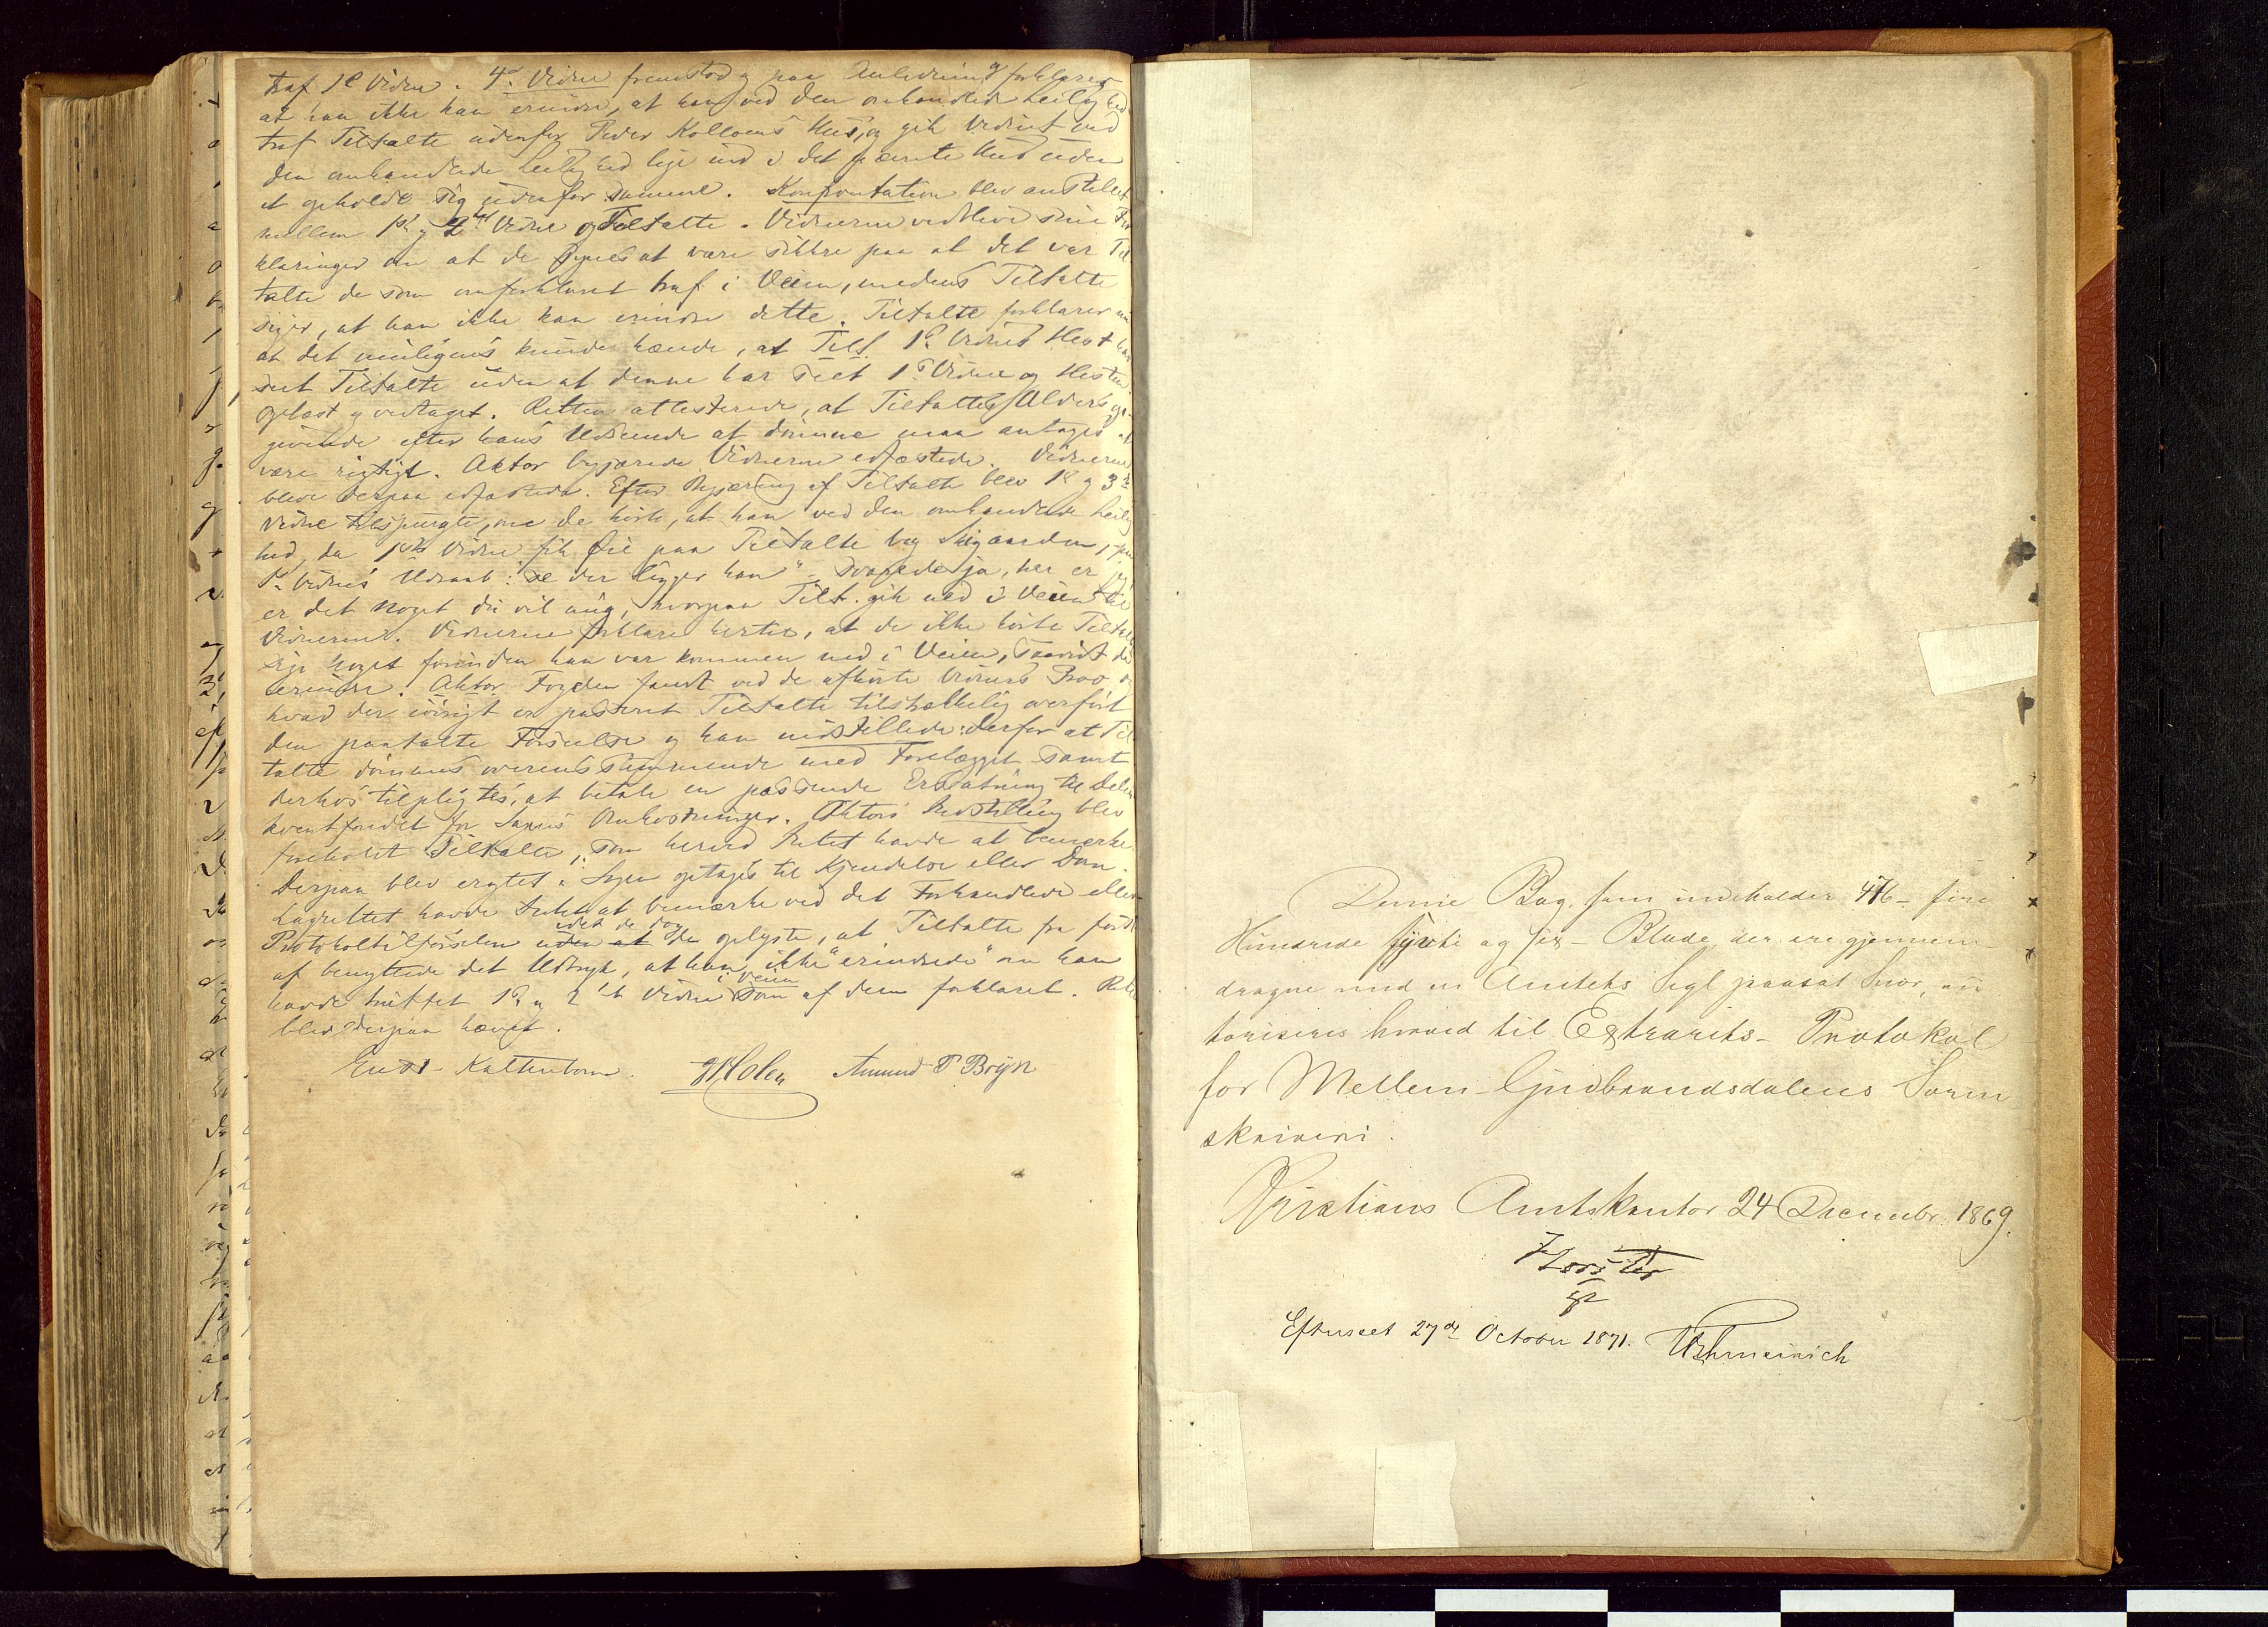 traf 1e Vidne. 4de Vidne fremstod og paa Anledning forklarer
at han ikke kan erindre, at han ved den omhandlede Leilighed
traf Tiltalte udenfor Peder Kolloens Hus, og gik Vidnet ved
den omhandlede Leilighed lige ind i det nævnte Hus uden
at opholde sig udenfor samme. Konfrontation blev anstillet
mellem 1ste og 2det Vidne og Tiltalte. Vidnerne vedblive sine For
klaringer om at de synes at være sikkre paa at det var Til
talte de som omforklaret traf i Veien, medens Tiltalte
siger, at han ikke kan erindre dette. Tiltalte forklarer
at det muligens kunde hænde, at Tilt. 1e Vidnes Hest har
seet Tiltalte uden at denne har seet 1e Vidne og Hesten.
Oplæst og vedtaget. Retten attesterede, at Tiltaltes Alders op-
givende efter hans Udseende at dømme maa antages at
være rigtigt. Aktor begjærede Vidnerne edfæstede. Vidnerne
bleve derpaa edfæstede. Efter Begjæring af Tiltalte blev 1e og 3de
Vidne tilspurgte, om de hørte, at han ved den omhandlede Leilig
hed, da 1ste Vidne fik Øie paa Tiltalte bag Skigarden, paa
1e Vidnes Udraab: "se der ligger han" svarede "ja, her er jeg
er det noget du vil mig, hvorpaa Tilt. gik ned i Veien til
Vidnerne. Vidnerne forklare hertil, at de ikke hørte Tiltalte
sige noget førinden han var kommen ned i Veien, saavidt de
erindre. Aktor Fogden fandt ved de afhørte Vidners Prov og
hvad der iøvrigt er passeret Tiltalte tilstrækkelig overført
den paatalte Forseelse og han indstillede derfor at Til
talte dømmes overensstemmende med Forelægget samt
derhos tilpligtes, at betale en passende Erstatning til Delin
kventfondet for Sagens Omkostninger. Aktors Indstilling blev
foreholdt Tiltalte, som herved Intet havde at bemærke.
Derpaa blev eragtet: Sagen optages til Kjendelse eller Dom.
Lagrettet havde Intet at bemærke ved det Forhandlede eller
Protokoltilførselen uden at de idet de dog oplyste, at Tiltalte fra først
af benyttede det Udtryk, at han ikke "erindrede" om han
havde truffet 1e og 2det Vidne i Veien som af dem forklaret. Retten
blev derpaa hævet.
Kaltenborn. Holen Amund P Bryn
Denne Bog, som indeholder 476 - fire
Hundrede sytti og sex - Blade, der ere gjennem-
dragne med en Amtets Segl paasat Snor, au
toriseres hvorved til Extrarets-Protokol
for Mellem-Gudbrandsdalens Soren
skriveri.
Kristians Amtskontor 24 December 1869.
Efterseet 27de October 1871.